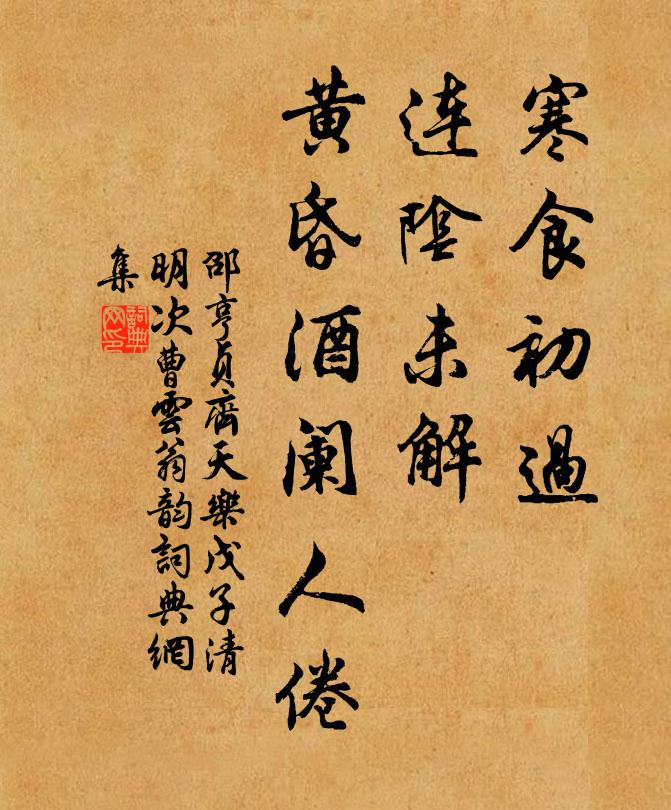 寒食初過
連陰未解
黄昏酒阑人倦
邵亨貞齊天樂戊子清
明次曹雲翁韵詞典網
集
詞典
网印